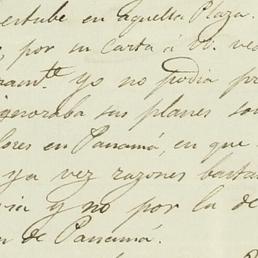 estube en aquella Plaza.
, por su Carta á VV. ve
ramte. yo no podia pr
ignoraba sus planes so
lores en Panamá, en que
ya vez razones basta
ia y no por la de
n de Panamá.